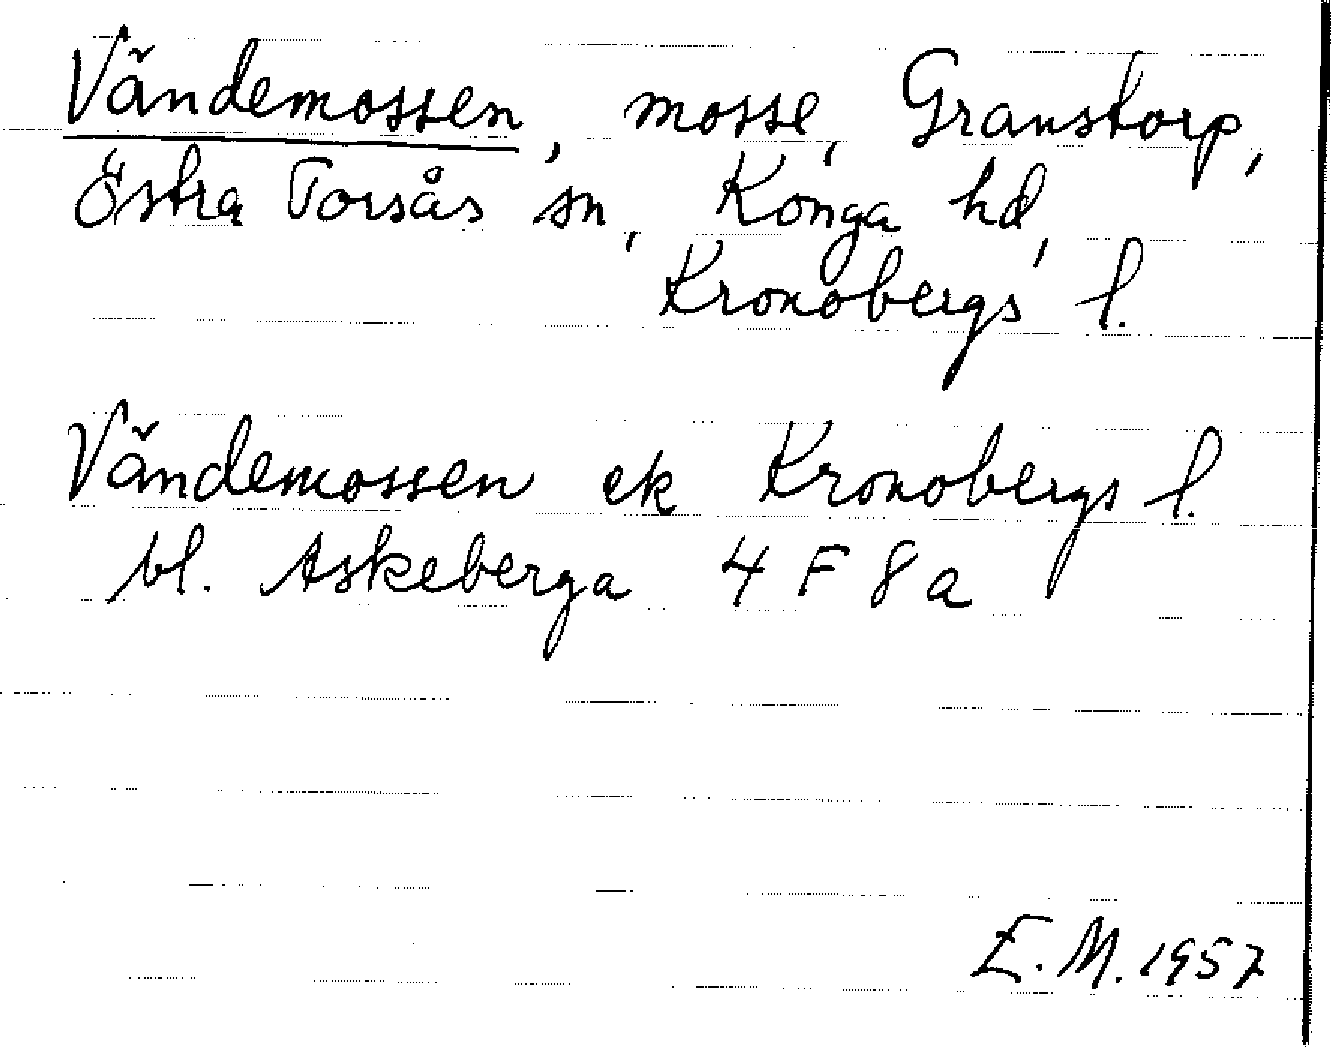 Vändemossen, mosse, Granstorp,
Östra Torsås sn, Konga hd,
Kronobergs l.
Vändemossen ek Kronobergs l.
bl. Askeberga 4 F 8 a
E. M. 1957